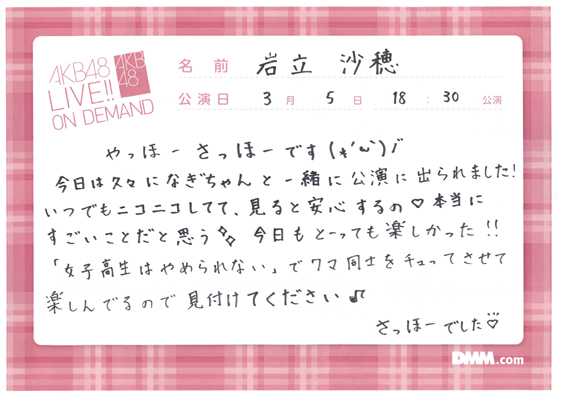 AKB48
LIVE!!
ON DEMAND
AKB
48
名前 岩立 沙穂
公演日 3月 5日 18:30 公演
やっほー さっほーです(*'ω')ノ
今日は久々になぎちゃんと一緒に公演に出られました!
いつでもニコニコしてて、見ると安心するの♡本当に
すごいことだと思う✨ 今日もとーっても楽しかった!!
「女子高生はやめられない」でクマ同士をチュッてさせて
楽しんでるので見付けてください♪
さっほーでした♡
DMM.com